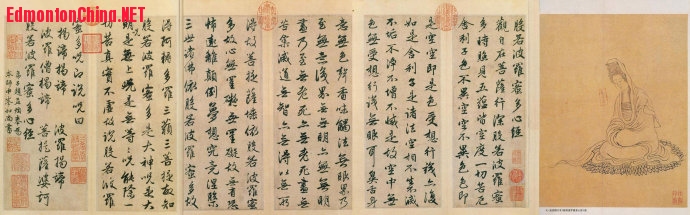 EdmontonChina.NET
般若波羅蜜多心經
觀自在菩薩行深般若波羅蜜
多時照見五蘊皆空度一切苦厄
舍利子色不異空空不異色色即
是空空即是色受想行識亦復
如是舍利子是諸法空相不生不滅
不垢不淨不增不減是故空中無
色無受想行識無眼耳鼻舌身
意無色聲香味觸法無眼界乃
至無意識界無無明亦無無明
盡乃至無老死亦無老死盡無
苦集滅道無智亦無得以無所
得故菩提薩埵依般若波羅蜜
多故心無罣礙無罣礙故無有恐
怖遠離顛倒夢想究竟涅槃
三世諸佛依般若波羅蜜多故
得阿耨多羅三藐三菩提故知
般若波羅蜜多是大神呪是大
明呪是無上呪是無等等呪能除
一切苦真實不虛故說般若波羅
蜜多呪即說呪曰
揭諦揭諦 波羅揭諦
波羅僧揭諦 菩提薩婆訶
般若波羅蜜多心經
弟子趙孟頫奉為
本師中峯和尚書